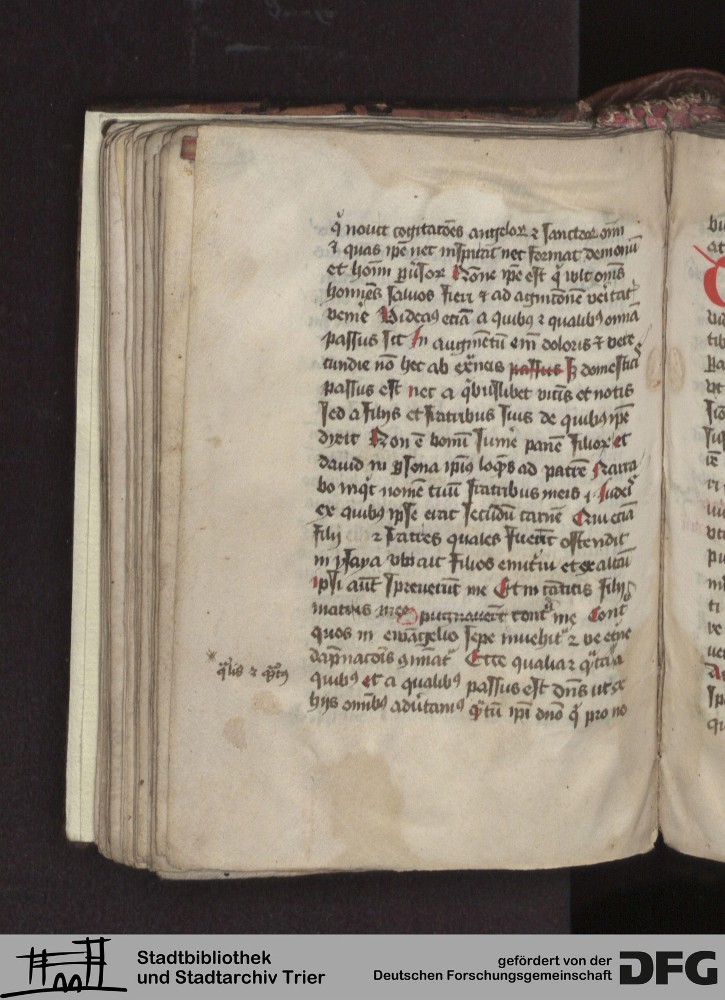 q̉ nouit cogitac̄oēs angeloꝝ ⁊ sanctoꝝ om̄i
⁊ quas ip̄e nec inspirat nec format demonū
et hom̄ ꝑuersoꝝ Rōne ip̄e est q̉ wlt om̄s
homines saluos fieri ⁊ ad agnitōnem veritat
venire Videaꝰ etiā a quibꝰ ⁊ qualibꝰ omnia
passus sit In augmentū em̄ doloris ⁊ vere
cundie nō hec ab ext̄neis passus sꝫ domestic
passus est nec a q̉buslibet vicīs et notis
sed a filijs et fratribus suis de quibꝰ ip̄e
dixit Non ē bonū sumē panē filioꝝ et
dauid in ꝑsona ipiꝰ loq̄ns ad patrē Narra
bo inq̇t nomē tuū fratribus meis ⁊ iudei
ex quibꝰ ipse erat secūdū carnē Qui etiā
filij ⁊ fratres quales fuerīt ostendit
in ysaya vbi ait Filios enutriui et exaltaui
ipsi aūt spreuerūt me Et in cāticis filij
matris mee pugnauerūt contra me Cont
quos in ewāgelio sepe inuehit᷑ ⁊ ve et̄ne
dāpnacōis ꝯminat᷑ Ecce qualia ⁊ q̈nta a
quibꝰ et a qualibꝰ passus est dn̄s ut ex
hijs omībꝰ aduertamꝰ q̈ntū ip̄i dn̄o q̉ pro no
q̈lis ⁊ q̈ntꝰ
Stadtbibliothek
und Stadtarchiv Trier
gefördert von der
Deutschen Forschungsgemeinschaft
DFG